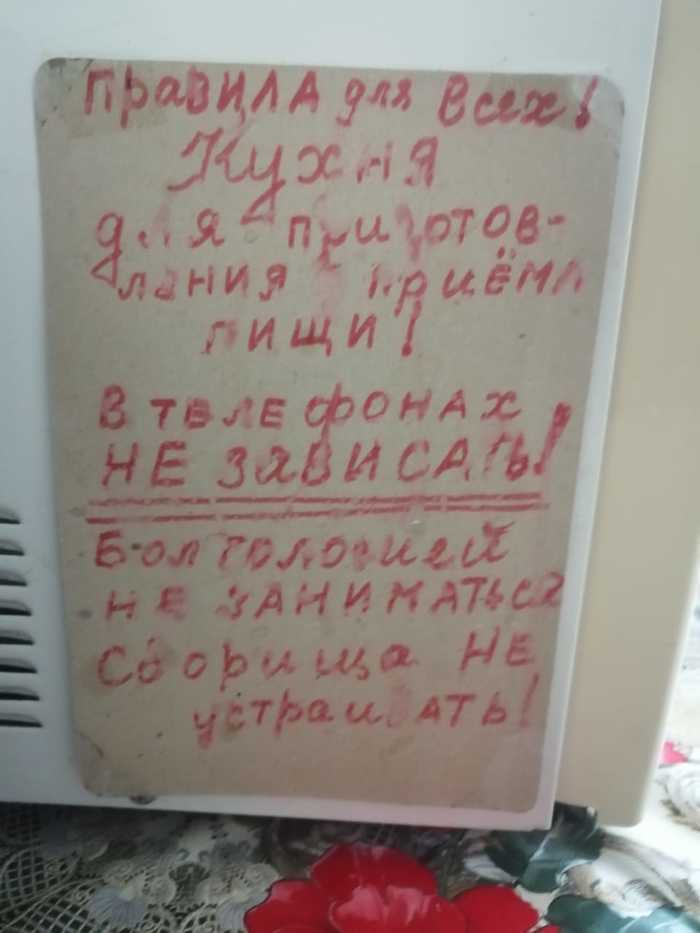 Правила для всех!
Кухня
для приготов-
ления приёма
пищи!
В телефонах
НЕ ЗАВИСАТЬ!
Болтологией
НЕ ЗАНИМАТЬСЯ
Сборища НЕ
устраивать!